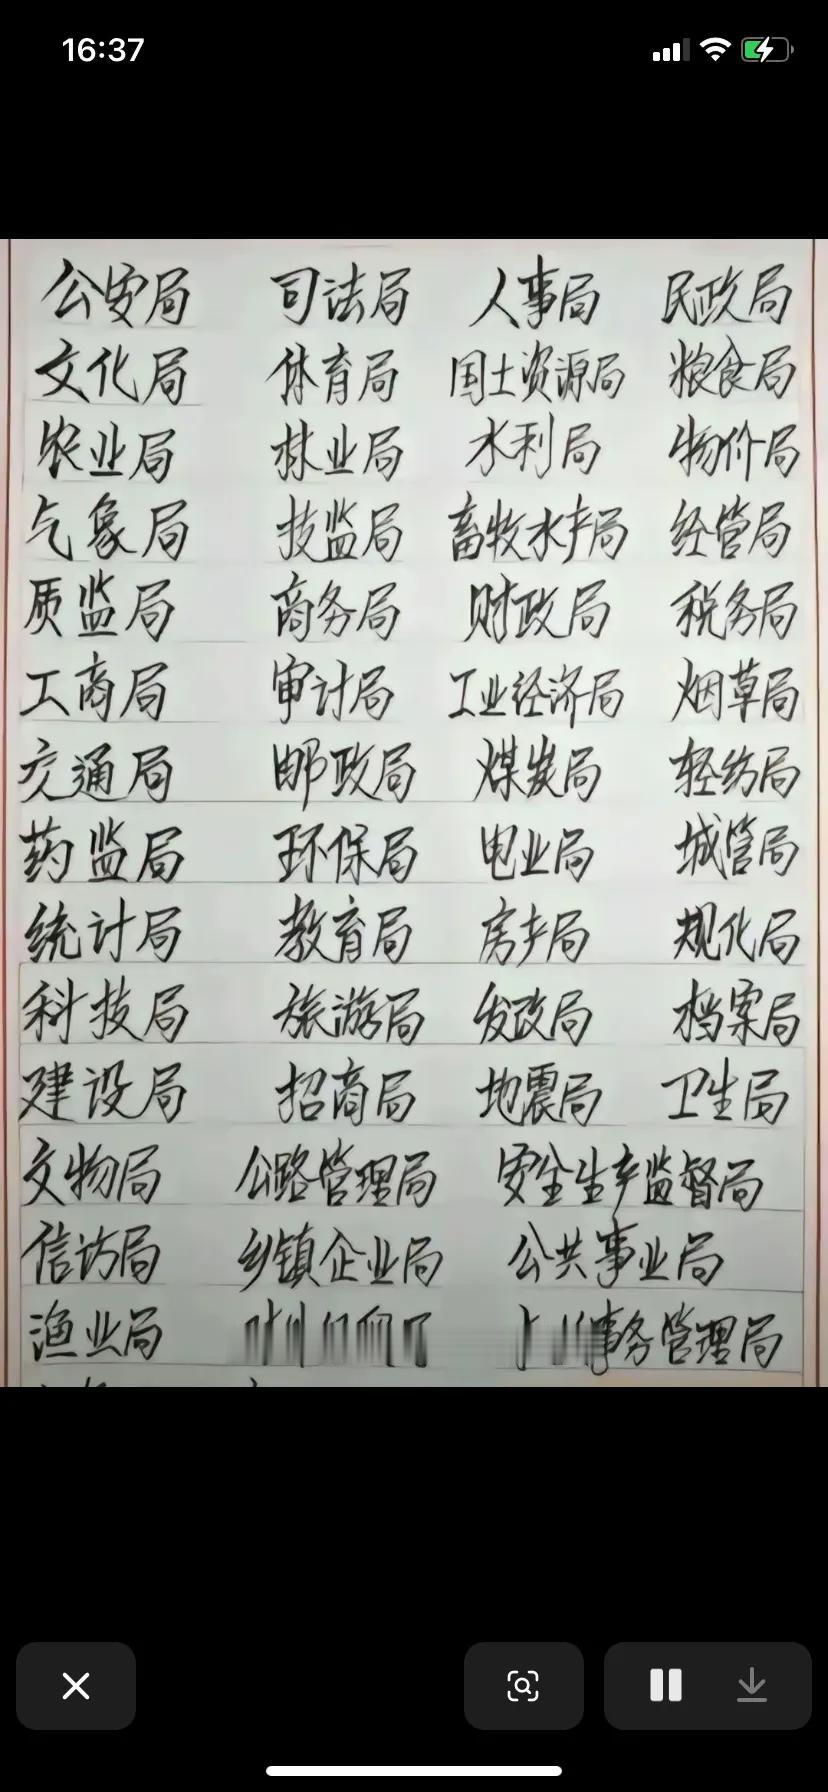 16:37
公安局 司法局 人事局 民政局
文化局 体育局 国土资源局 粮食局
农业局 林业局 水利局 物价局
气象局 技监局 畜牧水产局 经管局
质监局 商务局 财政局 税务局
工商局 审计局 工业经济局 烟草局
交通局 邮政局 煤炭局 轻纺局
药监局 环保局 电业局 城管局
统计局 教育局 房产局 规化局
科技局 旅游局 发改局 档案局
建设局 招商局 地震局 卫生局
文物局 公路管理局 安全生产监督局
信访局 乡镇企业局 公共事业局
渔业局 事务管理局